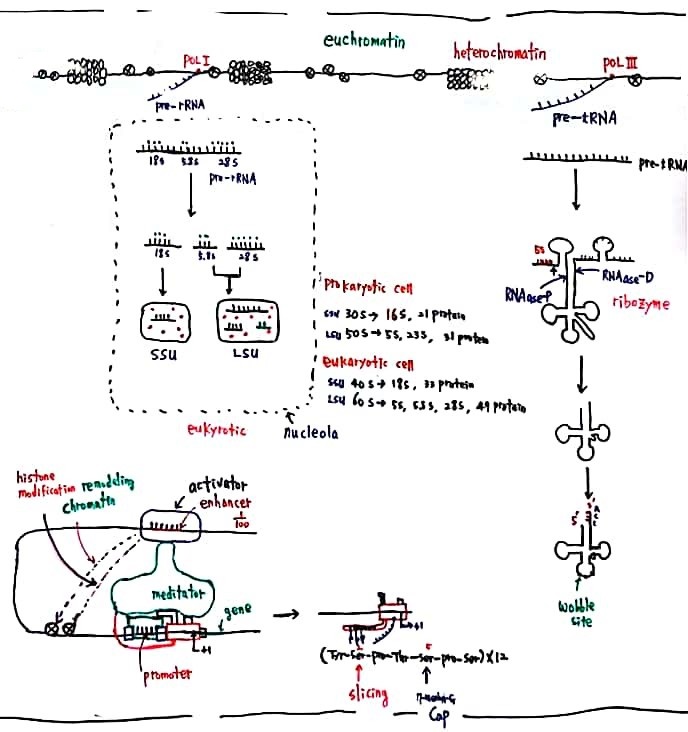 euchromatin
heterochromatin
POL I
POL III
pre-rRNA
pre-tRNA
18s 5.8s 28s
pre-rRNA
pre-tRNA
18s 5.8s 28s
SSU LSU
prokaryotic cell
SSU 30S → 16S, 21 protein
LSU 50S → 5S, 23S, 31 protein
eukaryotic cell
SSU 40S → 18S, 33 protein
LSU 60S → 5S, 5.8S, 28S, 49 protein
eukyrotic
nucleola
5s
RNAase-D
RNAase-P
ribozyme
5'
3'
A
C
C
wobble
site
histone
modification
remodeling
chromatin
activator
enhancer
1/100
meditator
gene
+1
promoter
+1
(Tyr-Ser-pro-Thr-ser-pro-Ser)×12
slicing
Cap